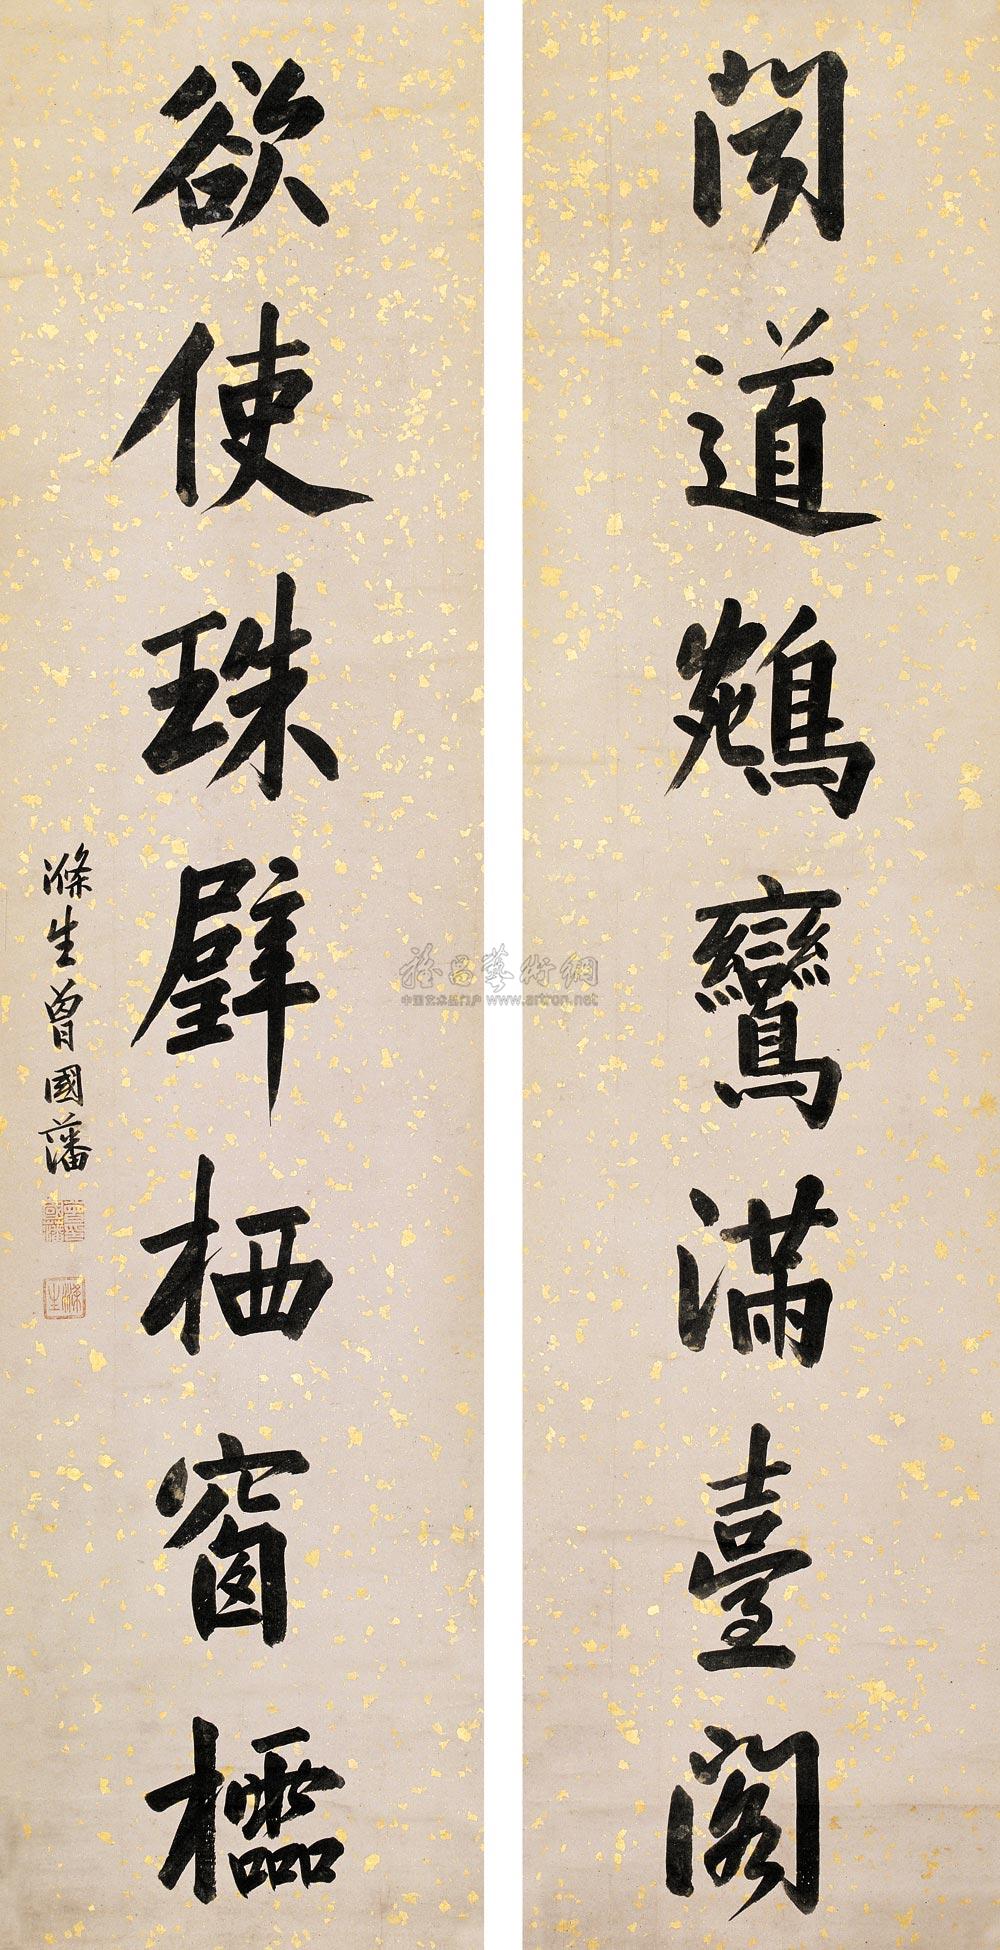 聞道鵷鸞滿臺閣
欲使珠璧栖窗櫺
滌生曾國藩
雅昌藝術網
中国艺术品门户 www.artron.net